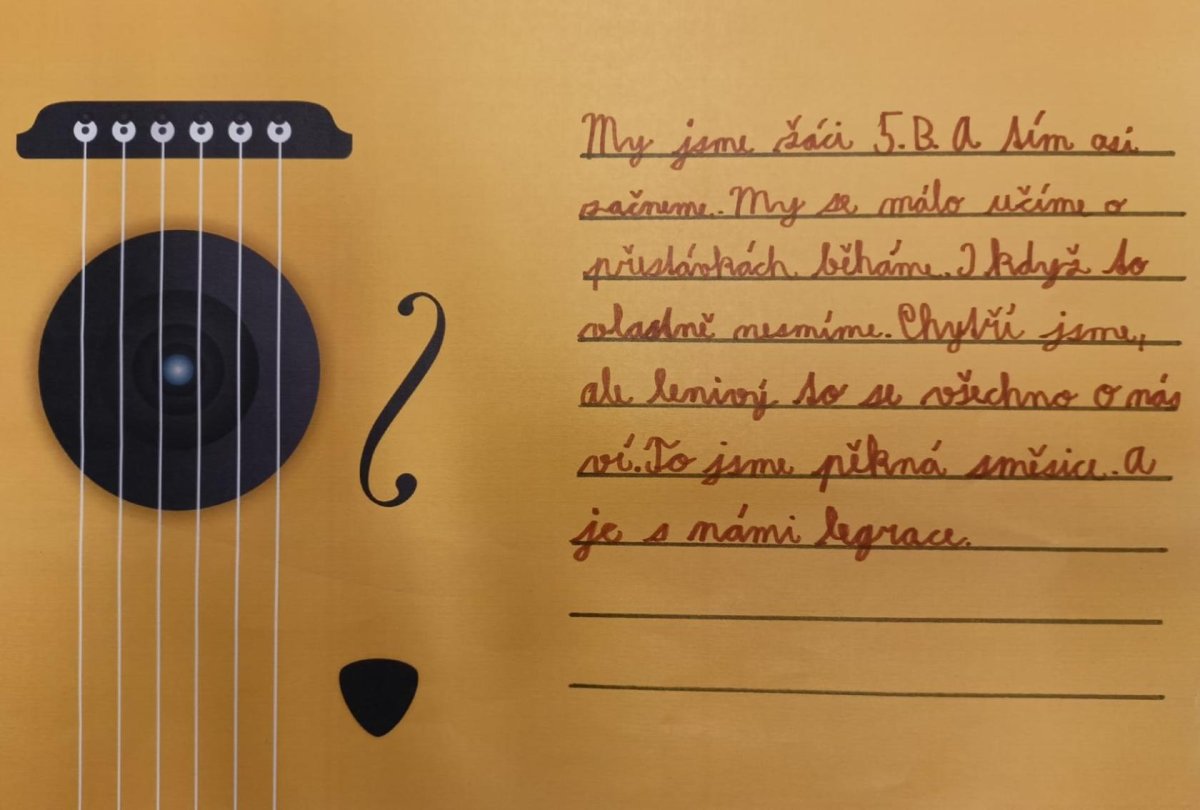 My jsme žáci 5.B. A tím asi
začneme. My se málo učíme o
přestávkách běháme. I když to
vlastně nesmíme. Chytří jsme,
ale lenivý to se všechno o nás
ví. To jsme pěkná směsice. A
je s námi legrace.